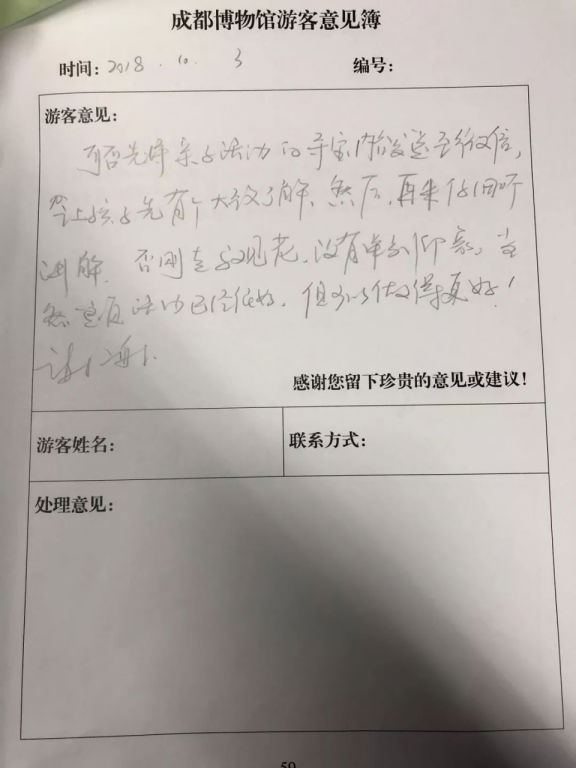 成都博物馆游客意见簿
时间: 2018 . 10. 3 编号:
游客意见:
可否先将亲子活动的寻宝内容发送至微信,
让孩子先有个大致了解、然后,再来你们听
讲解. 否则走观花,没有深刻印象。当
然这反活动已经很好,但可以做得更好!
谢谢!
感谢您留下珍贵的意见或建议!
游客姓名:
联系方式:
处理意见:
59